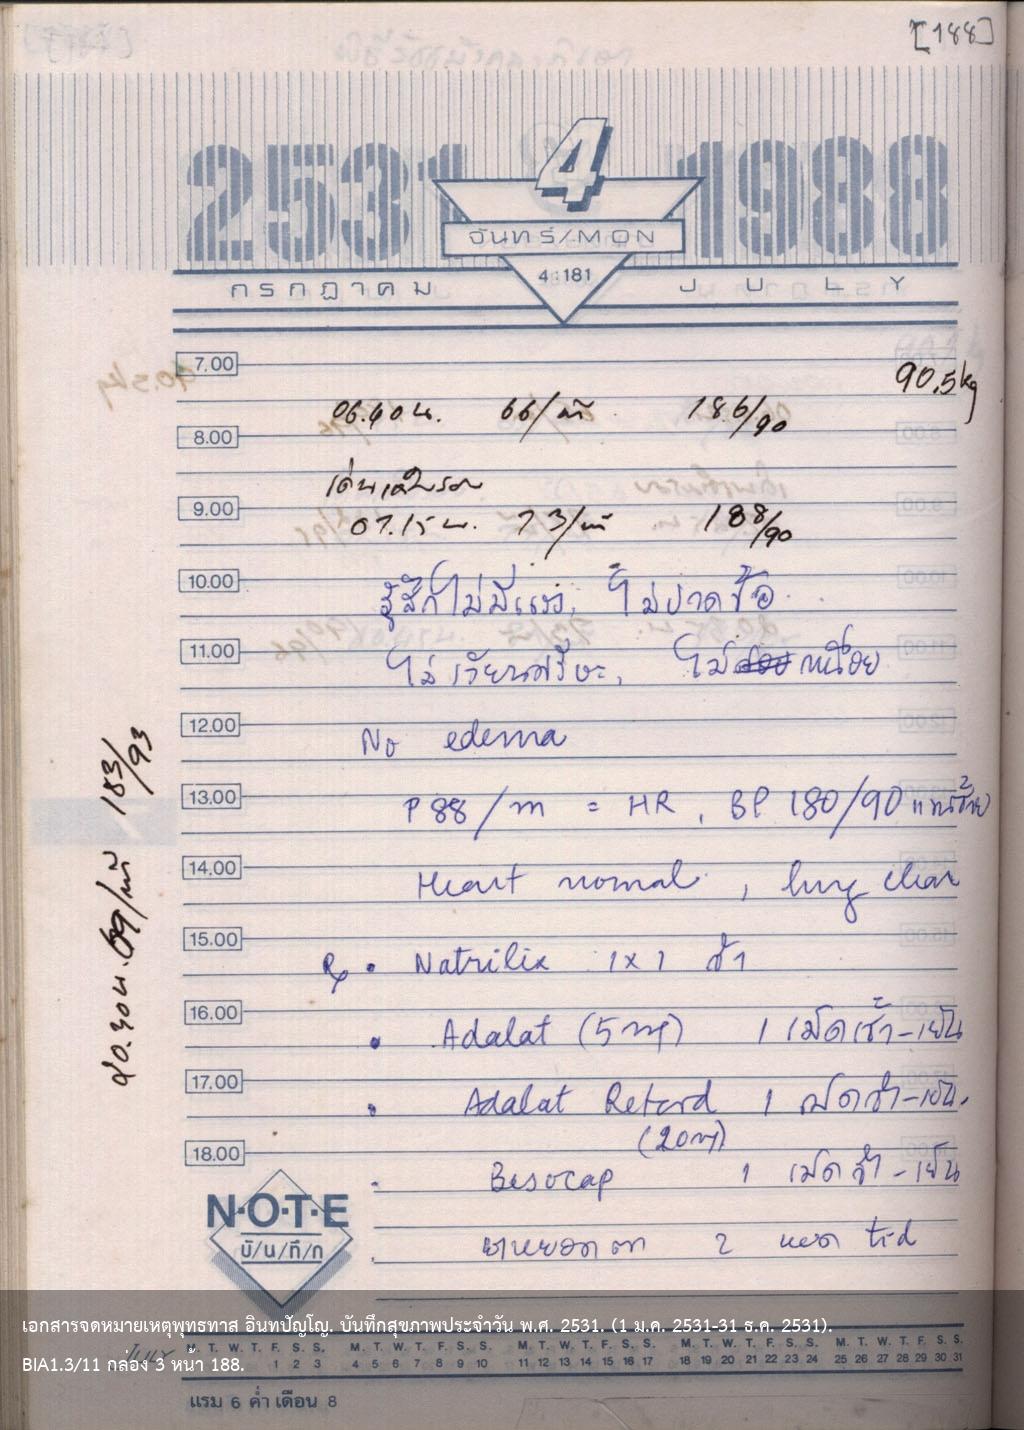 [188]
2531 4 1988
จันทร์/MON
4:181
กรกฎาคม JULY
7.00
90.5 kg
06.40 น. 66/นาที 186/90
8.00
เดินเสร็จรอบ
9.00
07.15 น. 73/นาที 188/90
10.00
รู้สึกไม่มีแรง, ไม่ปวดข้อ
11.00
ไม่เวียนศรีษะ, ไม่ เหนื่อย
12.00
No edema
13.00
P 88/m = HR, BP 180/90 แขนซ้าย
14.00
Heart normal, lung clear
15.00
Rx • Natrilix 1x1 เช้า
16.00
• Adalat (5 mg) 1 เม็ดเช้า-เย็น
17.00
• Adalat Retard 1 เม็ดเช้า-เย็น.
(20 mg)
18.00
• Besocap 1 เม็ดเช้า-เย็น
• ยาหยอดตา 2 หยด tid
20.30 น. 69/นาที 183/93
N·O·T·E
บั/น/ทึ/ก
เอกสารจดหมายเหตุพุทธทาส อินทปัญโญ. บันทึกสุขภาพประจำวัน พ.ศ. 2531. (1 ม.ค. 2531-31 ธ.ค. 2531).
M. T. W. T. F. S. S. M. T. W. T. F. S. S. M. T. W. T. F. S. S. M. T. W. T. F. S. S. M. T. W. T. F. S. S.
BIA1.3/11 กล่อง 3 หน้า 188.
1 2 3 4 5 6 7 8 9 10 11 12 13 14 15 16 17 18 19 20 21 22 23 24 25 26 27 28 29 30 31
แรม 6 ค่ำ เดือน 8